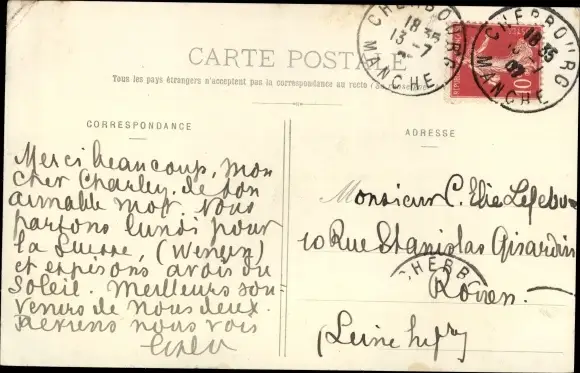 CARTE POSTALE
Tous les pays étrangers n'acceptent pas la correspondance au recto
CHERBOURG
18 35
13 -7
MANCHE
CHERBOURG
18 35
MANCHE
10
CORRESPONDANCE
Merci beaucoup, mon
cher Charley, de ton
aimable mot. Nous
partons lundi pour
la Suisse, (Wengen)
et espérons avoir du
Soleil. Meilleurs sou-
venirs de nous deux.
nous voir
ADRESSE
Monsieur C. Elie Lefebvre
10 Rue Stanislas Girardin
CHERB
Rouen.
(Seine Infre)